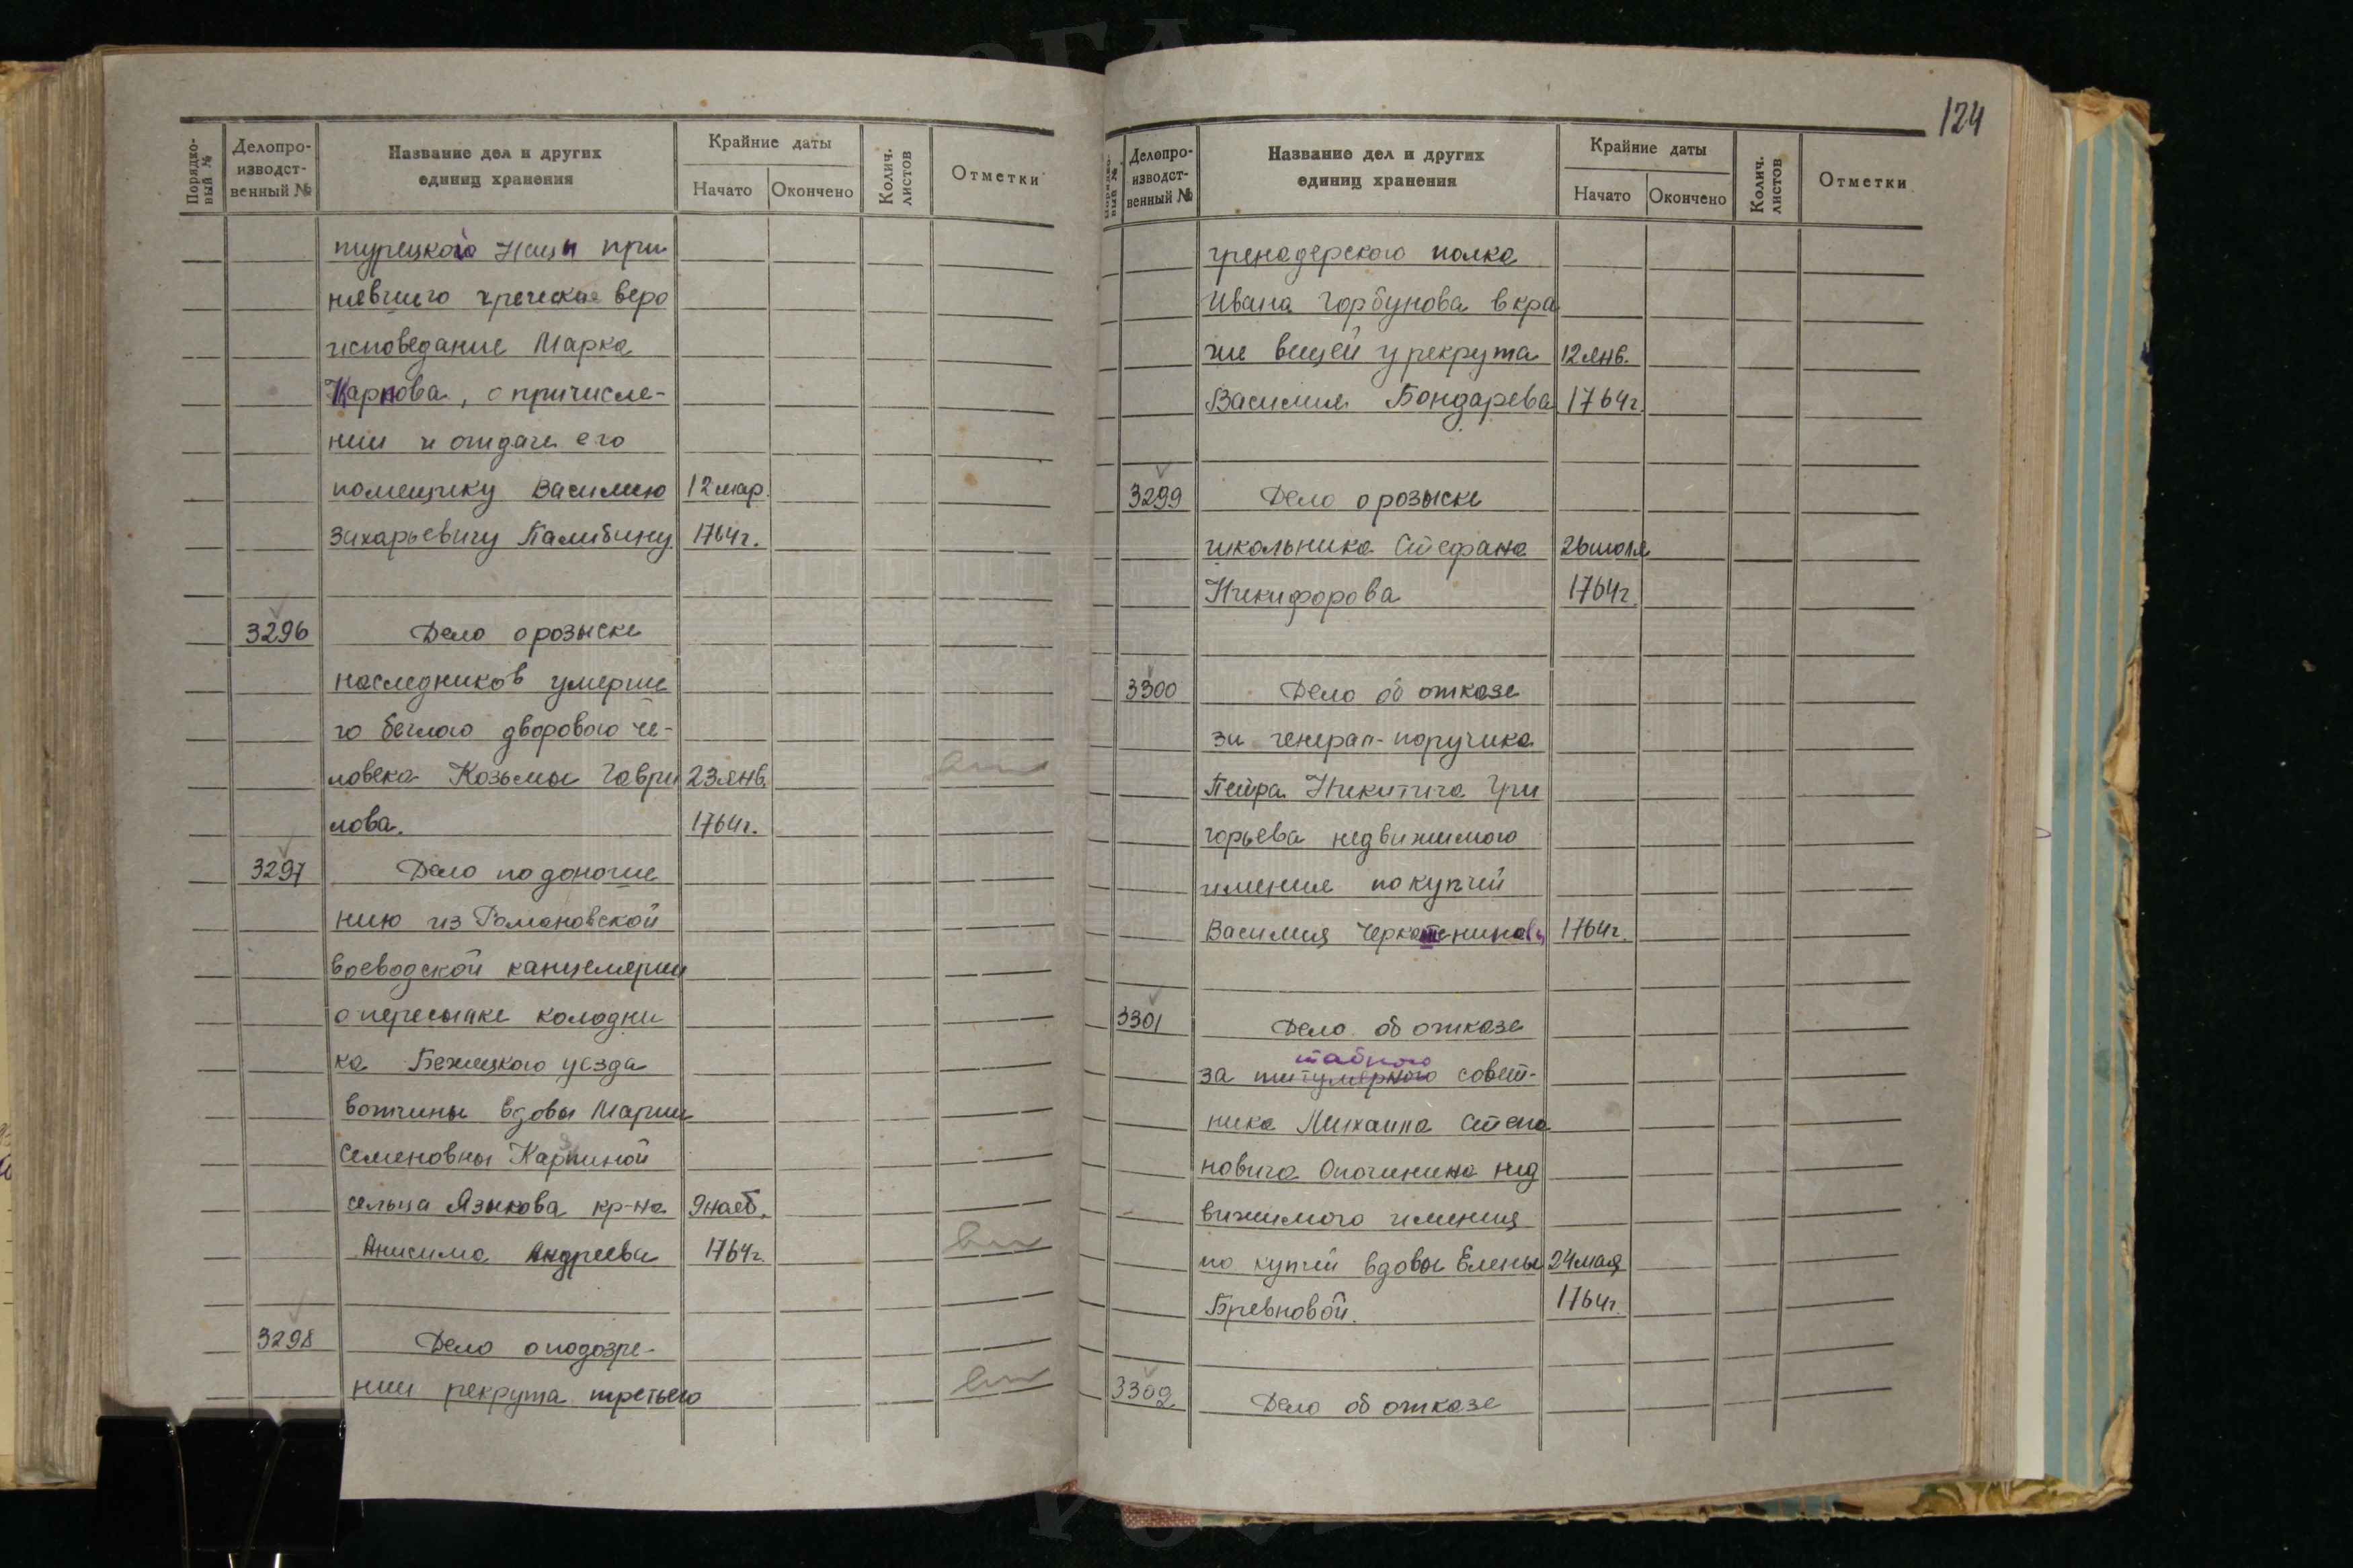 Порядко-
вый №
Делопро-
изводст-
венный №
Название дел и других
единиц хранения
Крайние даты
Начато
Окончено
Колич.
листов
Отметки
турецкого нации при
нявшего греческое веро
исповедание Марка
Карпова, о причисле-
нии и отдаче его
помещику Василию 12 мар.
Захарьевичу Палибину. 1764г.
3296 Дело о розыске
наследников умерше
го беглого дворового че-
ловека Козьмы Гаври 23 янв.
лова. 1764г.
3297 Дело по доноше
нию из Романовской
воеводской канцелярии
о пересылке колодни
ка Бежецкого уезда
вотчины вдовы Марии
Семеновны Карпиной
сельца Языкова кр-на 9 нояб.
Анисима Андреева 1764г.
3298 Дело о подозре-
нии рекрута третьего
124
Порядко-
вый №
Делопро-
изводст-
венный №
Название дел и других
единиц хранения
Крайние даты
Начато
Окончено
Колич.
листов
Отметки
гренадерского полка
Ивана Горбунова в кра
же вещей у рекрута 12 янв.
Василия Бондарева 1764г.
3299 Дело о розыске
школьника Стефана 26 июля
Никифорова 1764г.
3300 Дело об отказе
за генерал-поручика
Петра Никитича Гри
горьева недвижимого
имения по купчей
Василия 1764г.
3301 Дело об отказе
штабного
за титулярного совет-
ника Михаила Степа
новича Опочинина нед
вижимого имения
по купчей вдовы Елены 24 мая
Бревновой. 1764г.
3302. Дело об отказе